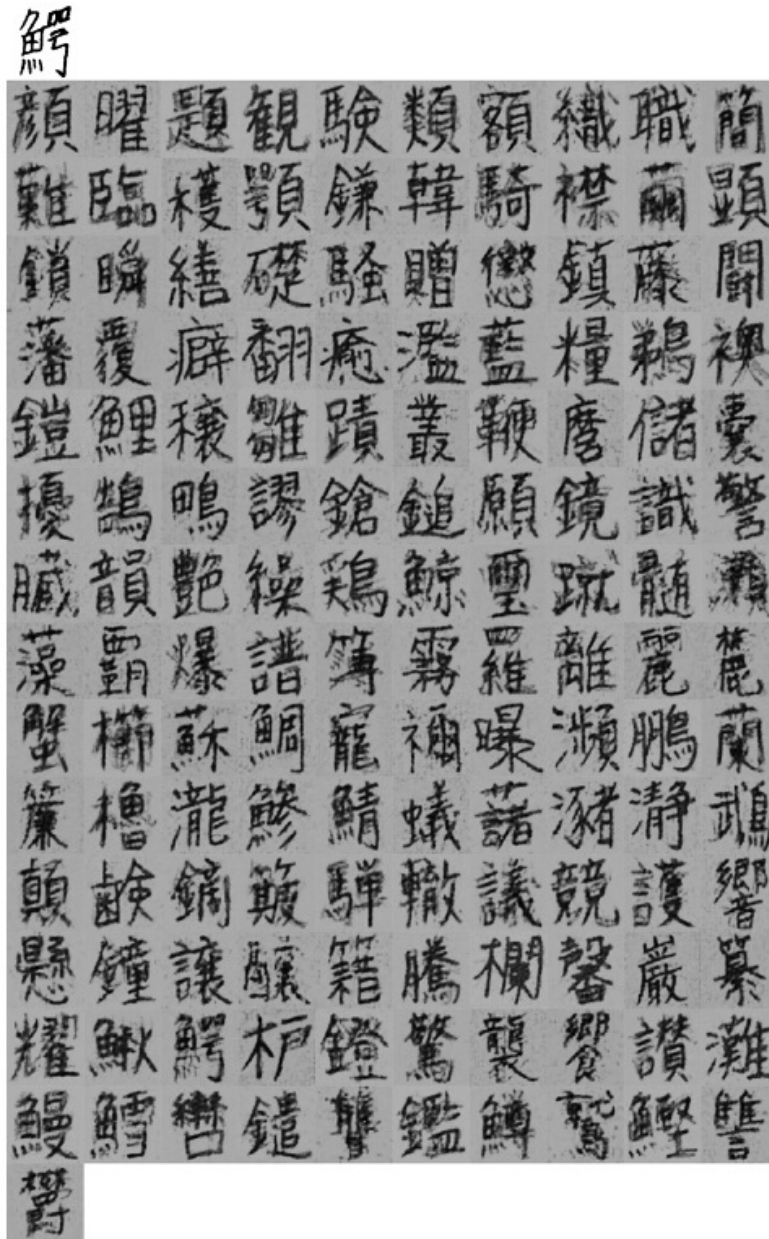 鰐
顔曜題観験類額織職簡
難臨穫顎鎌韓騎襟繭顕
鎖瞬繕礎騒贈懲鎮藤闘
藩覆癖翻癒濫藍糧鵜襖
鎧鯉穣雛蹟叢鞭麿儲嚢
擾鵠鴨謬鎗鎚願鏡識警
臓韻艶繰鶏鯨璽蹴髄瀬
藻覇爆譜簿霧羅離麗麓
蟹櫛蘇鯛寵禰曝瀕鵬蘭
簾櫓瀧鯵鯖蟻藷瀦瀞鵡
顛鹸鏑簸騨轍議競護響
懸鐘譲醸籍騰欄馨巌纂
耀鰍鰐枦鐙驚襲饗讃灘
鰻鱈轡鑓讐鑑鱒鷲鰹讐
欝